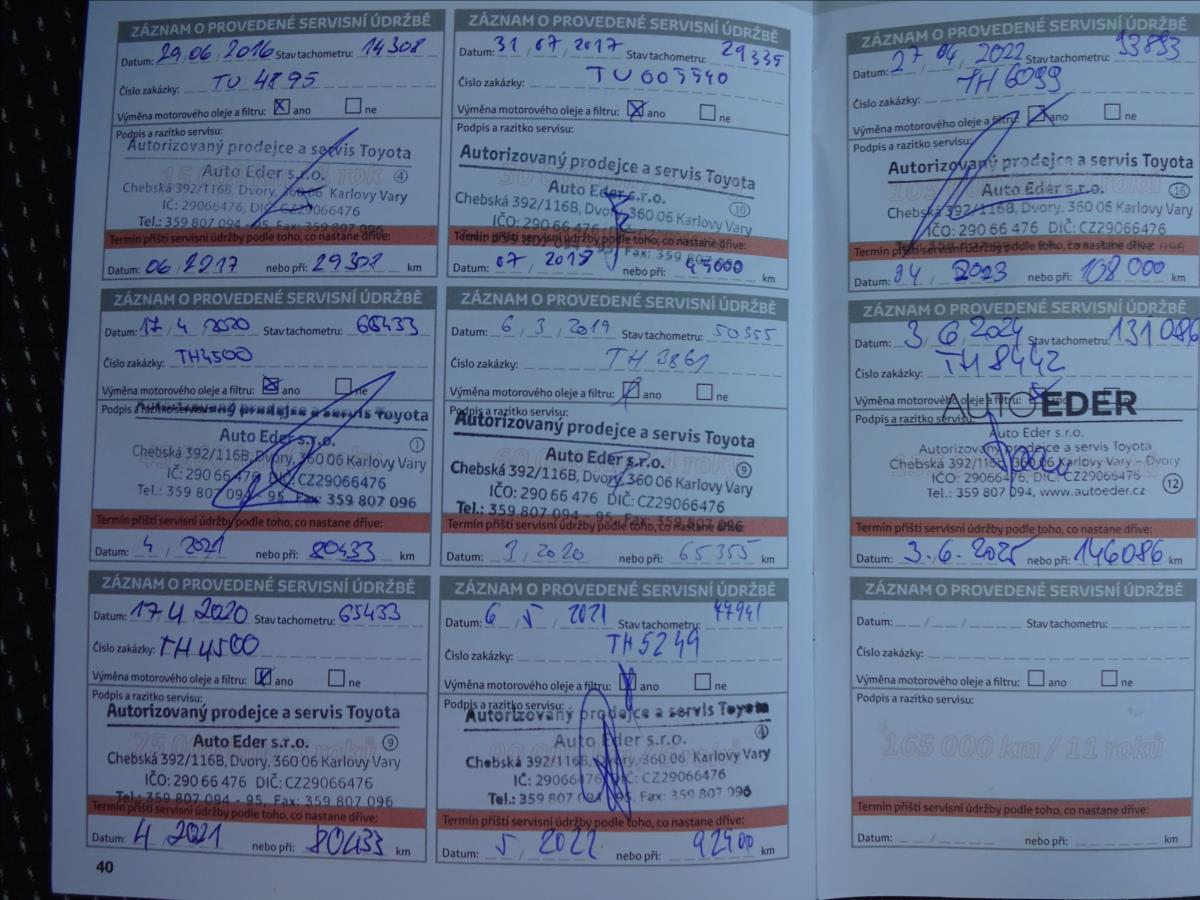 ZÁZNAM O PROVEDENÉ SERVISNÍ ÚDRŽBĚ
Datum: 29, 06, 2016 Stav tachometru: 14308
Číslo zakázky: TU 4895
Výměna motorového oleje a filtru: X ano ne
Podpis a razítko servisu:
Autorizovaný prodejce a servis Toyota
Auto Eder s.r.o. 4
Chebská 392/116B, Dvory, 360 06 Karlovy Vary
IČ: 29066476, DIČ: CZ29066476
Tel.: 359 807 094 - 95, Fax: 359 807 096
Termín příští servisní údržby podle toho, co nastane dříve:
Datum: 06, 2017 nebo při: 29308 km
ZÁZNAM O PROVEDENÉ SERVISNÍ ÚDRŽBĚ
Datum: 31, 07, 2017 Stav tachometru: 29335
Číslo zakázky: TU005540
Výměna motorového oleje a filtru: X ano ne
Podpis a razítko servisu:
Autorizovaný prodejce a servis Toyota
Auto Eder s.r.o. 10
Chebská 392/116B, Dvory, 360 06 Karlovy Vary
IČO: 290 66 476 DIČ: CZ29066476
Fax: 359 807
Termín příští servisní údržby podle toho, co nastane dříve:
Datum: 07, 2018 nebo při: 44000 km
ZÁZNAM O PROVEDENÉ SERVISNÍ ÚDRŽBĚ
Datum: 27, 04, 2022 Stav tachometru: 93893
Číslo zakázky: TH 6099
Výměna motorového oleje a filtru: X ano ne
Podpis a razítko servisu:
Autorizovaný prodejce a servis Toyota
Auto Eder s.r.o. 16
Chebská 392/116B, Dvory, 360 06 Karlovy Vary
IČO: 290 66 476 DIČ: CZ29066476
Termín příští servisní údržby podle toho, co nastane dříve:
Datum: 04, 2023 nebo při: 108 000 km
ZÁZNAM O PROVEDENÉ SERVISNÍ ÚDRŽBĚ
Datum: 17, 4, 2020 Stav tachometru: 65433
Číslo zakázky: TH4500
Výměna motorového oleje a filtru: X ano ne
Podpis a razítko servisu:
Autorizovaný prodejce a servis Toyota
Auto Eder s.r.o. 1
Chebská 392/116B, Dvory, 360 06 Karlovy Vary
IČ: 290 66 476, DIČ: CZ29066476
Tel.: 359 807 094 - 95, Fax: 359 807 096
Termín příští servisní údržby podle toho, co nastane dříve:
Datum: 4, 2021 nebo při: 80433 km
ZÁZNAM O PROVEDENÉ SERVISNÍ ÚDRŽBĚ
Datum: 6, 3, 2019 Stav tachometru: 50355
Číslo zakázky: TH 3861
Výměna motorového oleje a filtru: X ano ne
Podpis a razítko servisu:
Autorizovaný prodejce a servis Toyota
Auto Eder s.r.o. 9
Chebská 392/116B, Dvory, 360 06 Karlovy Vary
IČO: 290 66 476 DIČ: CZ29066476
Tel.: 359 807 094 - 95, Fax: 359 807 096
Termín příští servisní údržby podle toho, co nastane dříve:
Datum: 3, 2020 nebo při: 65355 km
ZÁZNAM O PROVEDENÉ SERVISNÍ ÚDRŽBĚ
Datum: 3, 6, 2024 Stav tachometru: 131086
Číslo zakázky: TH 8442
Výměna motorového oleje a filtru: X ano ne
Podpis a razítko servisu:
AUTO EDER
Auto Eder s.r.o.
Autorizovaný prodejce a servis Toyota
Chebská 392/116B, 360 06 Karlovy Vary – Dvory
Tel.: 359 807 094, www.autoeder.cz 12
Termín příští servisní údržby podle toho, co nastane dříve:
Datum: 3. 6. 2025 nebo při: 146086 km
ZÁZNAM O PROVEDENÉ SERVISNÍ ÚDRŽBĚ
Datum: 17 4 2020 Stav tachometru: 65433
Číslo zakázky: TH4500
Výměna motorového oleje a filtru: X ano ne
Podpis a razítko servisu:
Autorizovaný prodejce a servis Toyota
Auto Eder s.r.o. 9
Chebská 392/116B, Dvory, 360 06 Karlovy Vary
IČO: 290 66 476 DIČ: CZ29066476
Tel.: 359 807 094 - 95, Fax: 359 807 096
Termín příští servisní údržby podle toho, co nastane dříve:
Datum: 4 2021 nebo při: 80433 km
ZÁZNAM O PROVEDENÉ SERVISNÍ ÚDRŽBĚ
Datum: 6, 5, 2021 Stav tachometru: 77941
Číslo zakázky: TH5249
Výměna motorového oleje a filtru: X ano ne
Podpis a razítko servisu:
Autorizovaný prodejce a servis Toyota
Auto Eder s.r.o. 4
Chebská 392/116B, Dvory, 360 06 Karlovy Vary
IČ: 29066476, DIČ: CZ29066476
Tel.: 359 807 094 - 95, Fax: 359 807 096
Termín příští servisní údržby podle toho, co nastane dříve:
Datum: 5, 2022 nebo při: 92900 km
ZÁZNAM O PROVEDENÉ SERVISNÍ ÚDRŽBĚ
Datum: / / Stav tachometru:
Číslo zakázky:
Výměna motorového oleje a filtru: ano ne
Podpis a razítko servisu:
165 000 km / 11 roků
Termín příští servisní údržby podle toho, co nastane dříve:
Datum: / nebo při: km
40